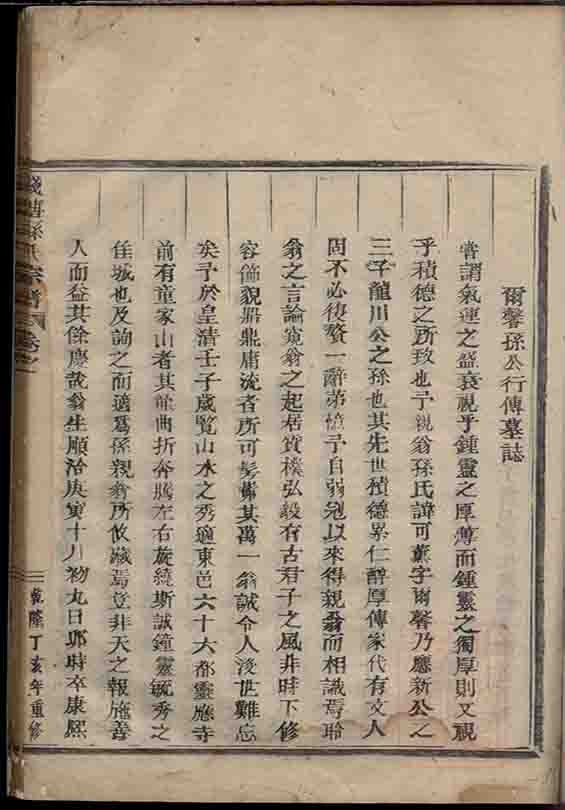 爾馨孫公行傳墓誌
嘗謂氣運之盛衰視乎鍾靈之厚薄而鍾靈之獨厚則又視
乎積德之所致也予親翁孫氏諱可薰字爾馨乃應新公之
三子龍川公之孫也其先世積德累仁醇厚傳家代有文人
固不必復贅一辭第憶予自弱冠以來得親翁而相識焉聆
翁之言論覓翁之起居質樸弘毅有古君子之風非時下修
容飾貌鼎鼎庸流者所可髣髴其萬一翁誠令人沒世難忘
矣予於皇清壬子歲覽山水之秀適東邑六十六都靈應寺
前有童家山者其龍曲折奔騰左右旋繞斯誠鍾靈毓秀之
佳城也及詢之而適為孫親翁所攸藏焉豈非天之報施善
人而益其餘慶哉翁生順治庚寅十月初九日卯時卒康熙
孫氏宗譜
卷之
乾隆丁亥年重修